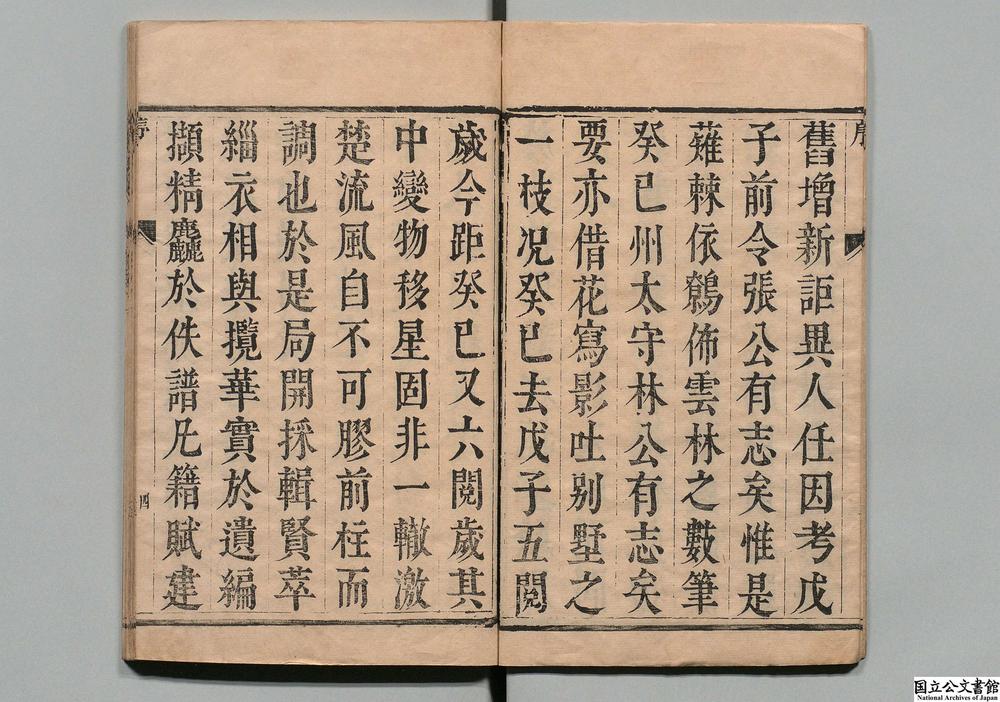 序
舊增新詎異人任因考戊
子前令張公有志矣惟是
薙棘依鶺佈雲林之數筆
癸巳州太守林公有志矣
要亦借花寫影吐别墅之
一枝况癸巳去戊子五閱
歲今距癸巳又六閱歲其
中變物移星固非一轍激
楚流風自不可膠前柱而
調也於是局開採輯賢萃
緇衣相與攬華實於遺編
擷精麤於佚譜凡籍賦建
序
四
国立公文書館
National Archives of Japan